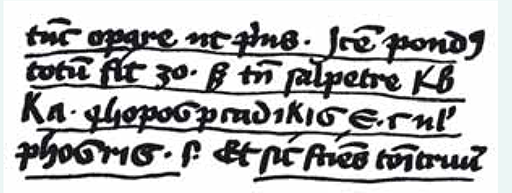 tūc opare ut p'us. Itē pondꝰ
totū sit 30. ẞ tn̄ salpetre KB
Ka. ϕhopoσpcadikis
phoσris. s. Et sic fciēs toītruū